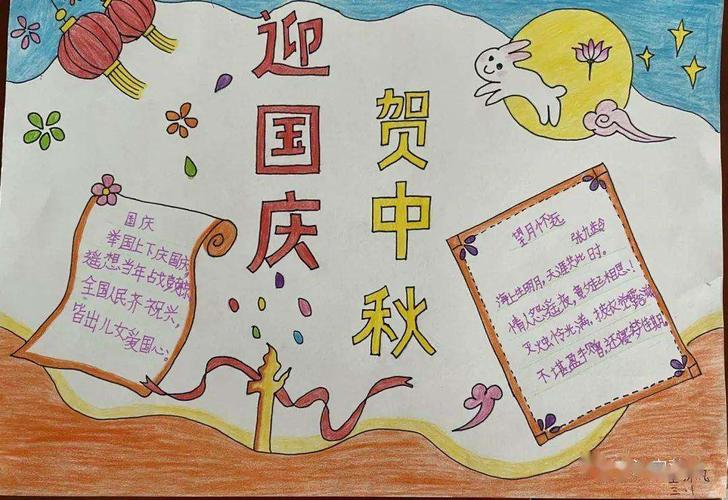 迎国庆
贺中秋
国庆
举国上下庆国庆
遥想当年战鼓
全国人民齐祝兴,
皆出儿女爱国心。
望月怀远
张九龄
海上生明月,天涯共此时。
情人怨遥夜,竟夕起相思!
灭烛怜光满,披衣觉露滋。
不堪盈手赠,还寝梦佳期。